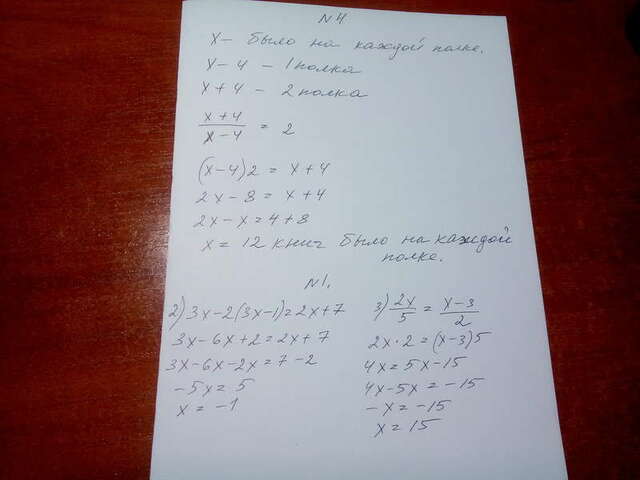 N4
x – было на каждой полке.
x – 4 – 1 полка
x + 4 – 2 полка
x + 4
x – 4
= 2
(x–4)2 = x+4
2x – 8 = x+4
2x – x = 4+8
x = 12 книг было на каждой
полке.
N1.
2) 3x–2(3x–1)=2x+7
3x–6x+2=2x+7
3x–6x–2x=7–2
–5x= 5
x = –1
3) 2x/5 = x–3/2
2x·2=(x–3)5
4x= 5x–15
4x–5x= –15
–x= –15
x= 15